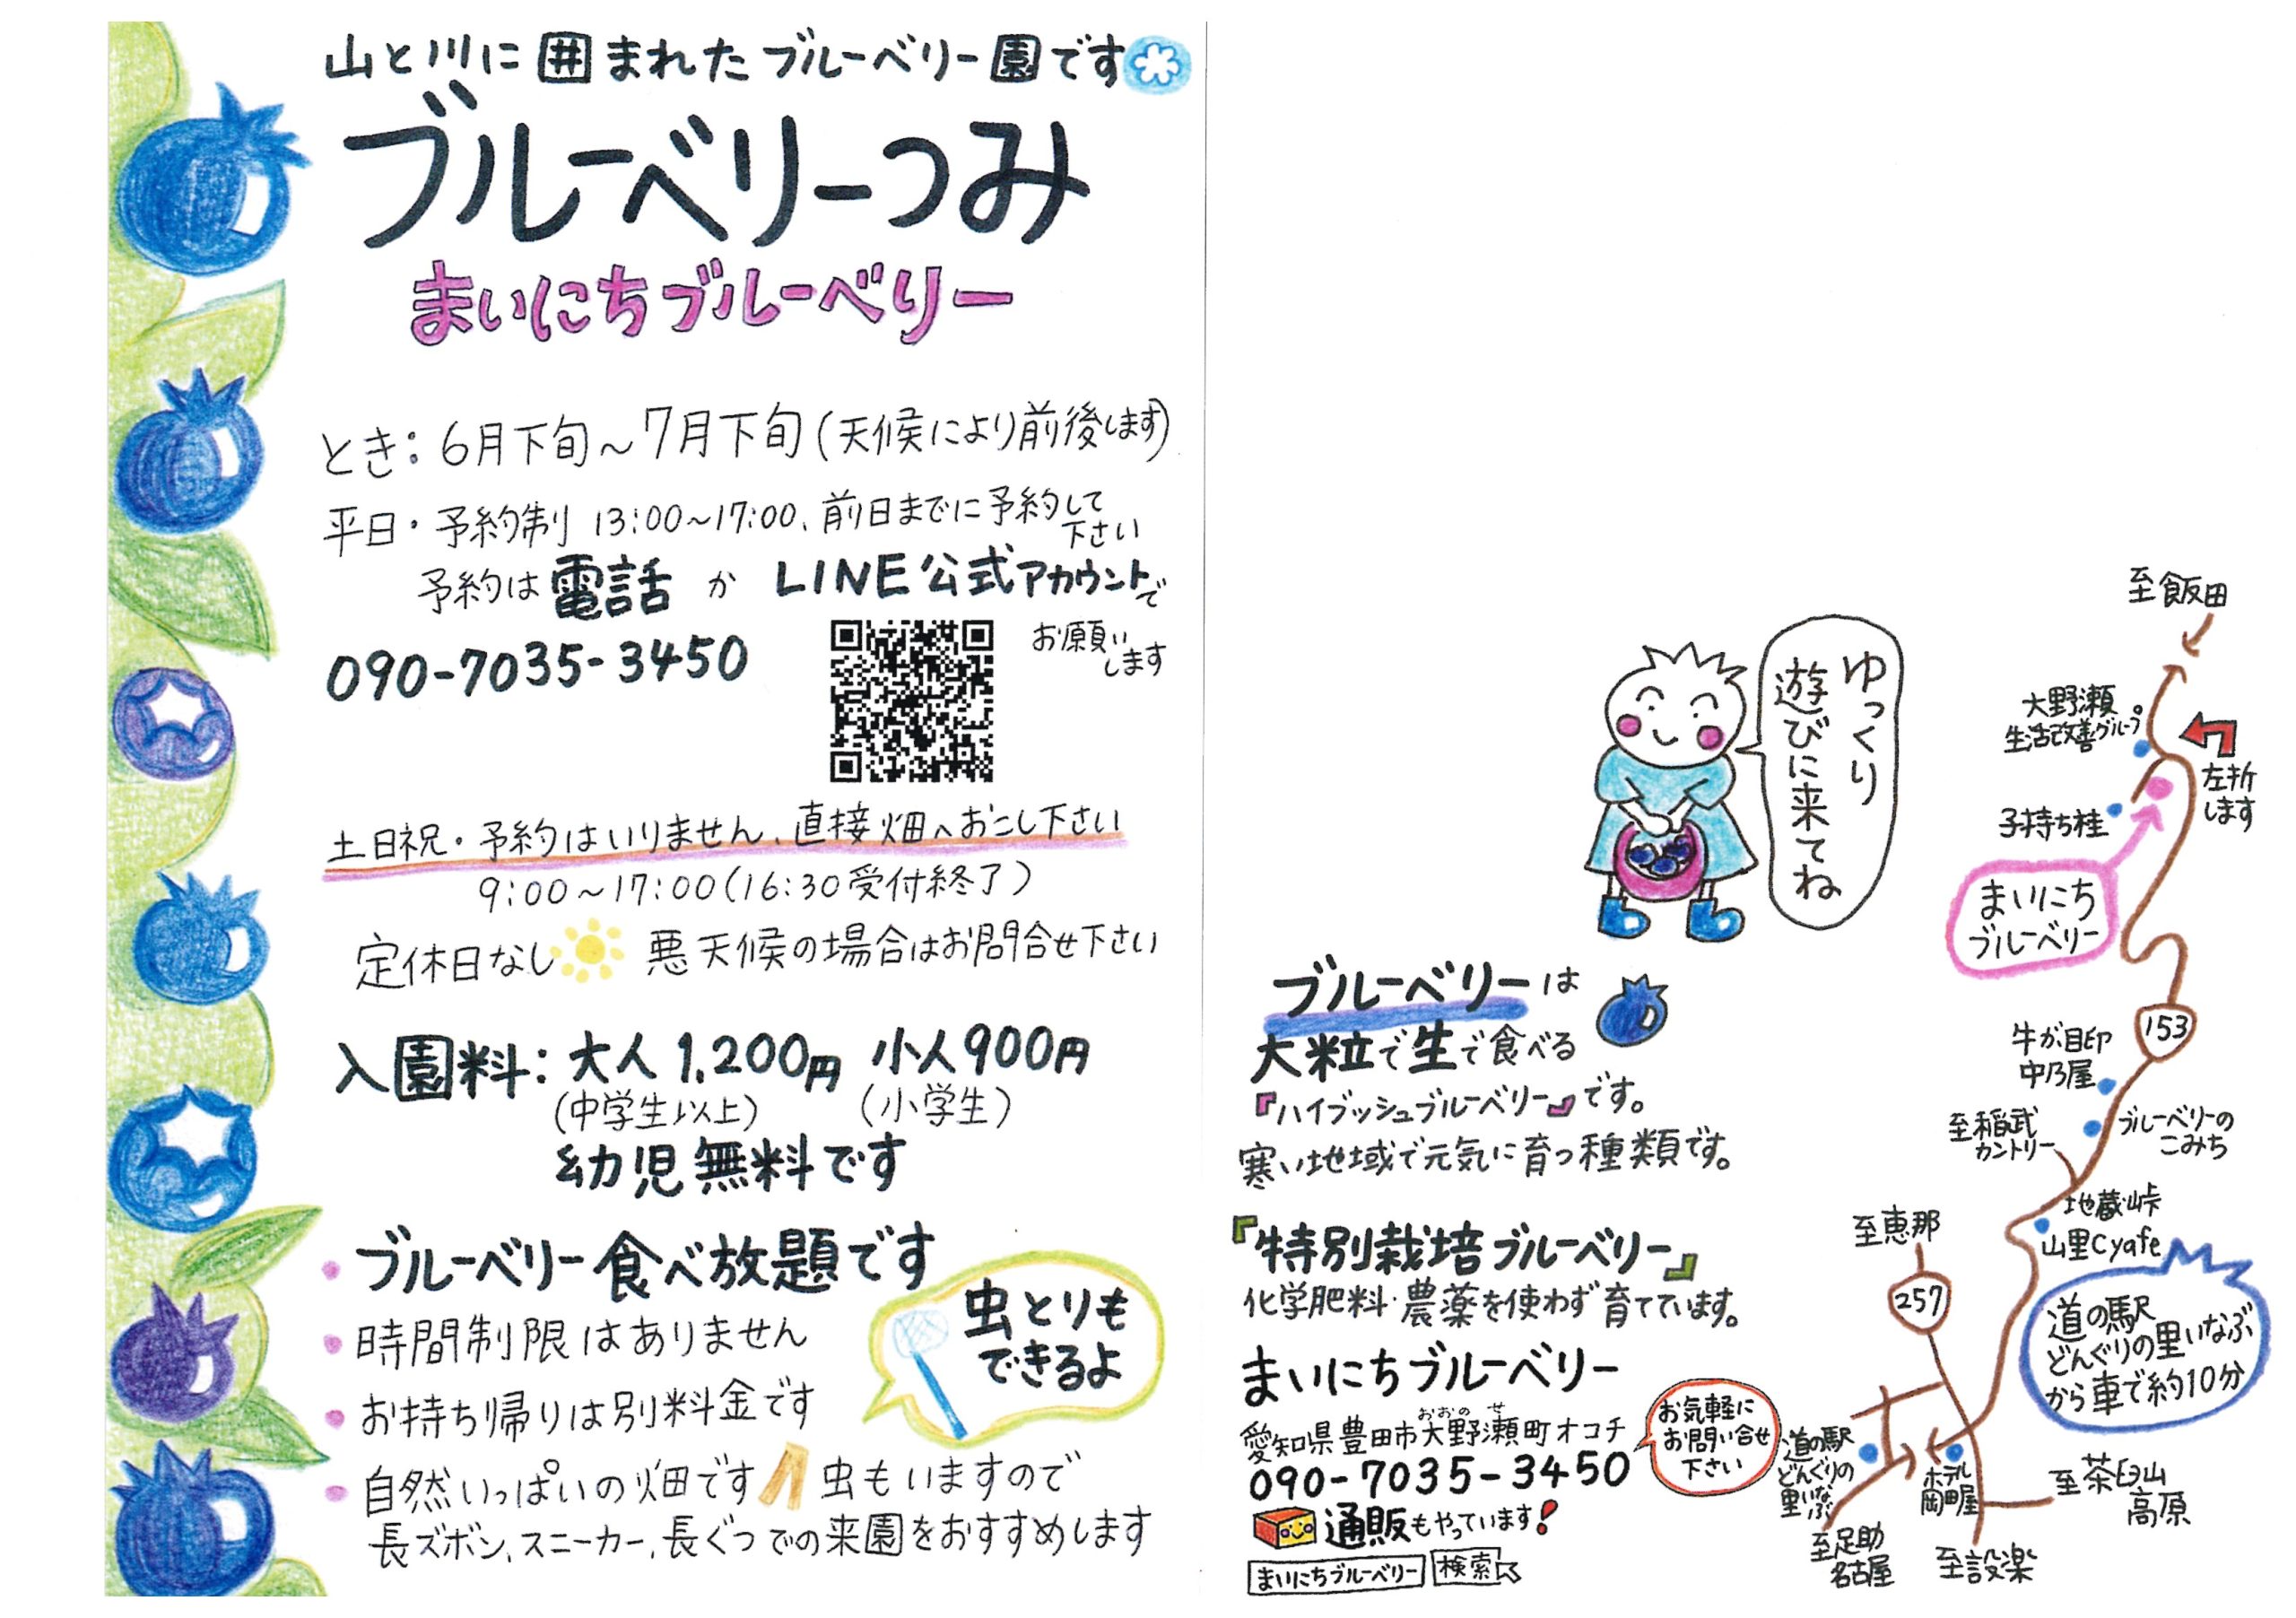 山と川に囲まれたブルーベリー園です
ブルーベリーつみ
まいにちブルーベリー
とき：6月下旬～7月下旬（天候により前後します）
平日・予約制 13:00～17:00、前日までに予約して
下さい
予約は電話か LINE公式アカウントで
お願いします
090-7035-3450
土日祝・予約はいりません、直接畑へおこし下さい
9:00～17:00（16:30受付終了）
定休日なし 悪天候の場合はお問合せ下さい
入園料：大人1,200円 小人900円
（中学生以上） （小学生）
幼児無料です
・ブルーベリー食べ放題です
・時間制限はありません
・お持ち帰りは別料金です
虫とりも
できるよ
・自然いっぱいの畑です 虫もいますので
長ズボン、スニーカー、長ぐつでの来園をおすすめします
ゆっくり
遊びに来てね
ブルーベリーは
大粒で生で食べる
『ハイブッシュブルーベリー』です。
寒い地域で元気に育つ種類です。
『特別栽培ブルーベリー』
化学肥料・農薬を使わず育てています。
まいにちブルーベリー
おおのせ
愛知県豊田市大野瀬町オコチ
090-7035-3450
お気軽に
お問い合せ
下さい
通販もやっています!
まいにちブルーベリー 検索
至飯田
大野瀬
生活改善グループ
左折
します
子持ち桂
まいにち
ブルーベリー
153
牛が目印
中乃屋
ブルーベリーの
こみち
至稲武
カントリー
地蔵峠
山里Cyafe
至恵那
257
道の駅
どんぐりの里いなぶ
から車で約10分
道の駅
どんぐりの
里いなぶ
ホテル
岡田屋
至茶臼山
高原
至足助
名古屋
至設楽